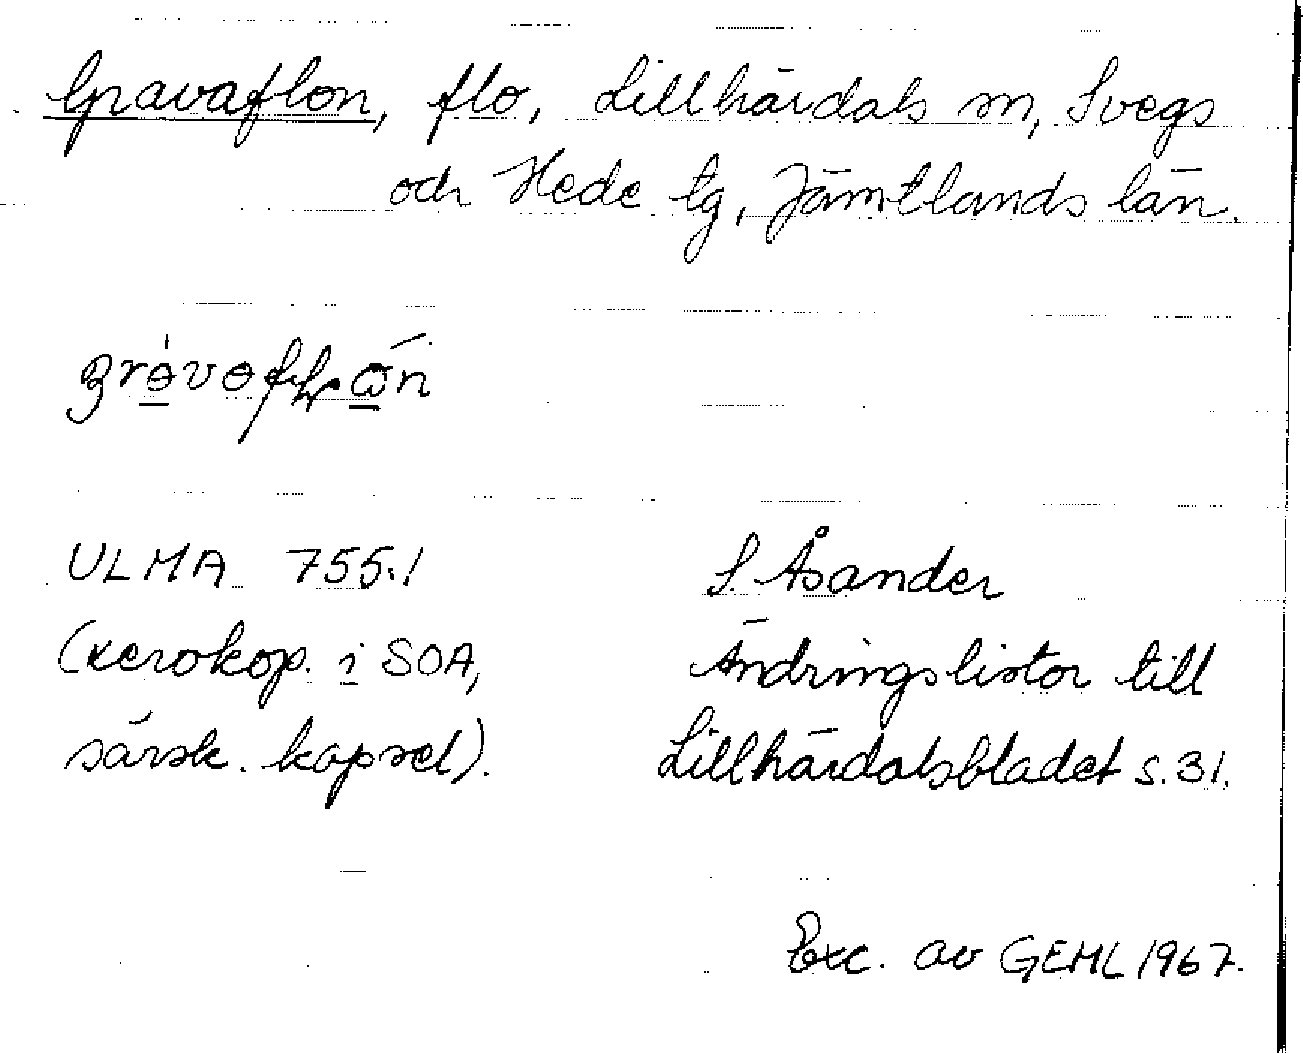 Gravaflon, flo, Lillhärdals sn, Svegs
och Hede tg, Jämtlands län.
ULMA 755:1
S. Åsander
(xerokop. i SOA,
Ändringslistor till
särsk. kapsel).
Lillhärdalsbladet s. 31.
Exc. av GEML 1967.